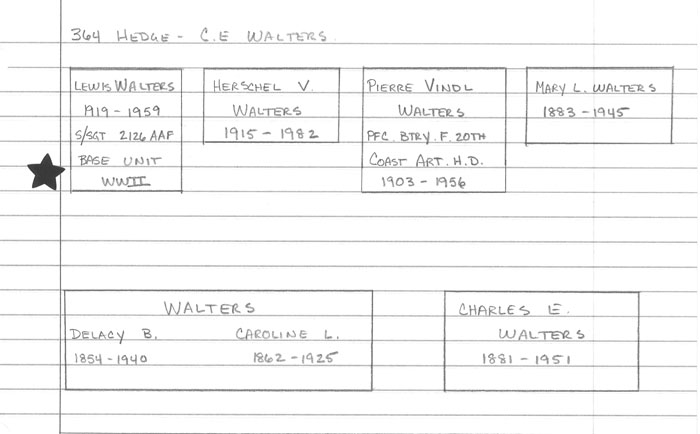 364 HEDGE - C.E WALTERS
LEWIS WALTERS
1919 - 1959
S/SGT 2126 AAF
BASE UNIT
WWII
HERSCHEL V.
WALTERS
1915 - 1982
PIERRE VINDL
WALTERS
PFC. BTRY. F. 20TH
COAST ART. H.D.
1903 - 1956
MARY L. WALTERS
1883 - 1945
WALTERS
DELACY B. CAROLINE L.
1854 - 1940 1862 - 1925
CHARLES E.
WALTERS
1881 - 1951